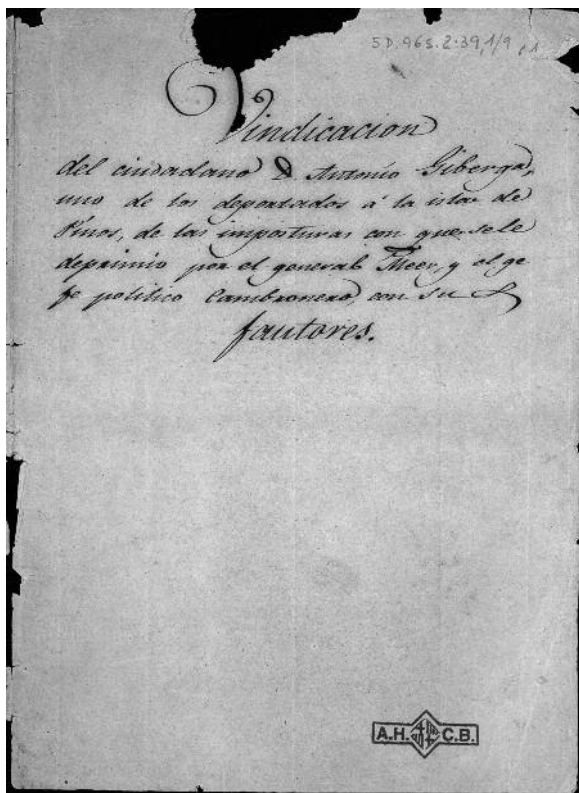 5D.965.2:39,1/9,1
Vindicacion
del ciudadano D. Antonio Giberga,
uno de los deportados á la isla de
Pinos, de las imposturas con que se le
deprimió por el general Meer, y el ge
fe político Cambronero, con su s
fautores.
A.H. C.B.